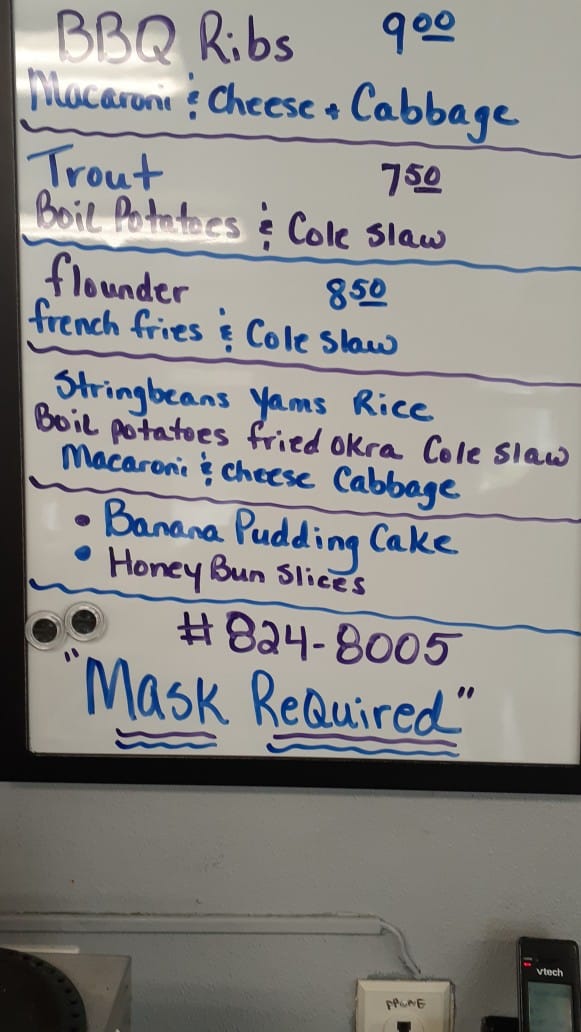 BBQ Ribs 9.00
Macaroni & Cheese + Cabbage
Trout 7.50
Boil Potatoes & Cole Slaw
flounder 8.50
french fries & Cole Slaw
Stringbeans Yams Rice
Boil potatoes fried okra Cole Slaw
Macaroni & cheese Cabbage
• Banana Pudding Cake
• Honey Bun Slices
#824-8005
"Mask Required"
vtech
PHONE